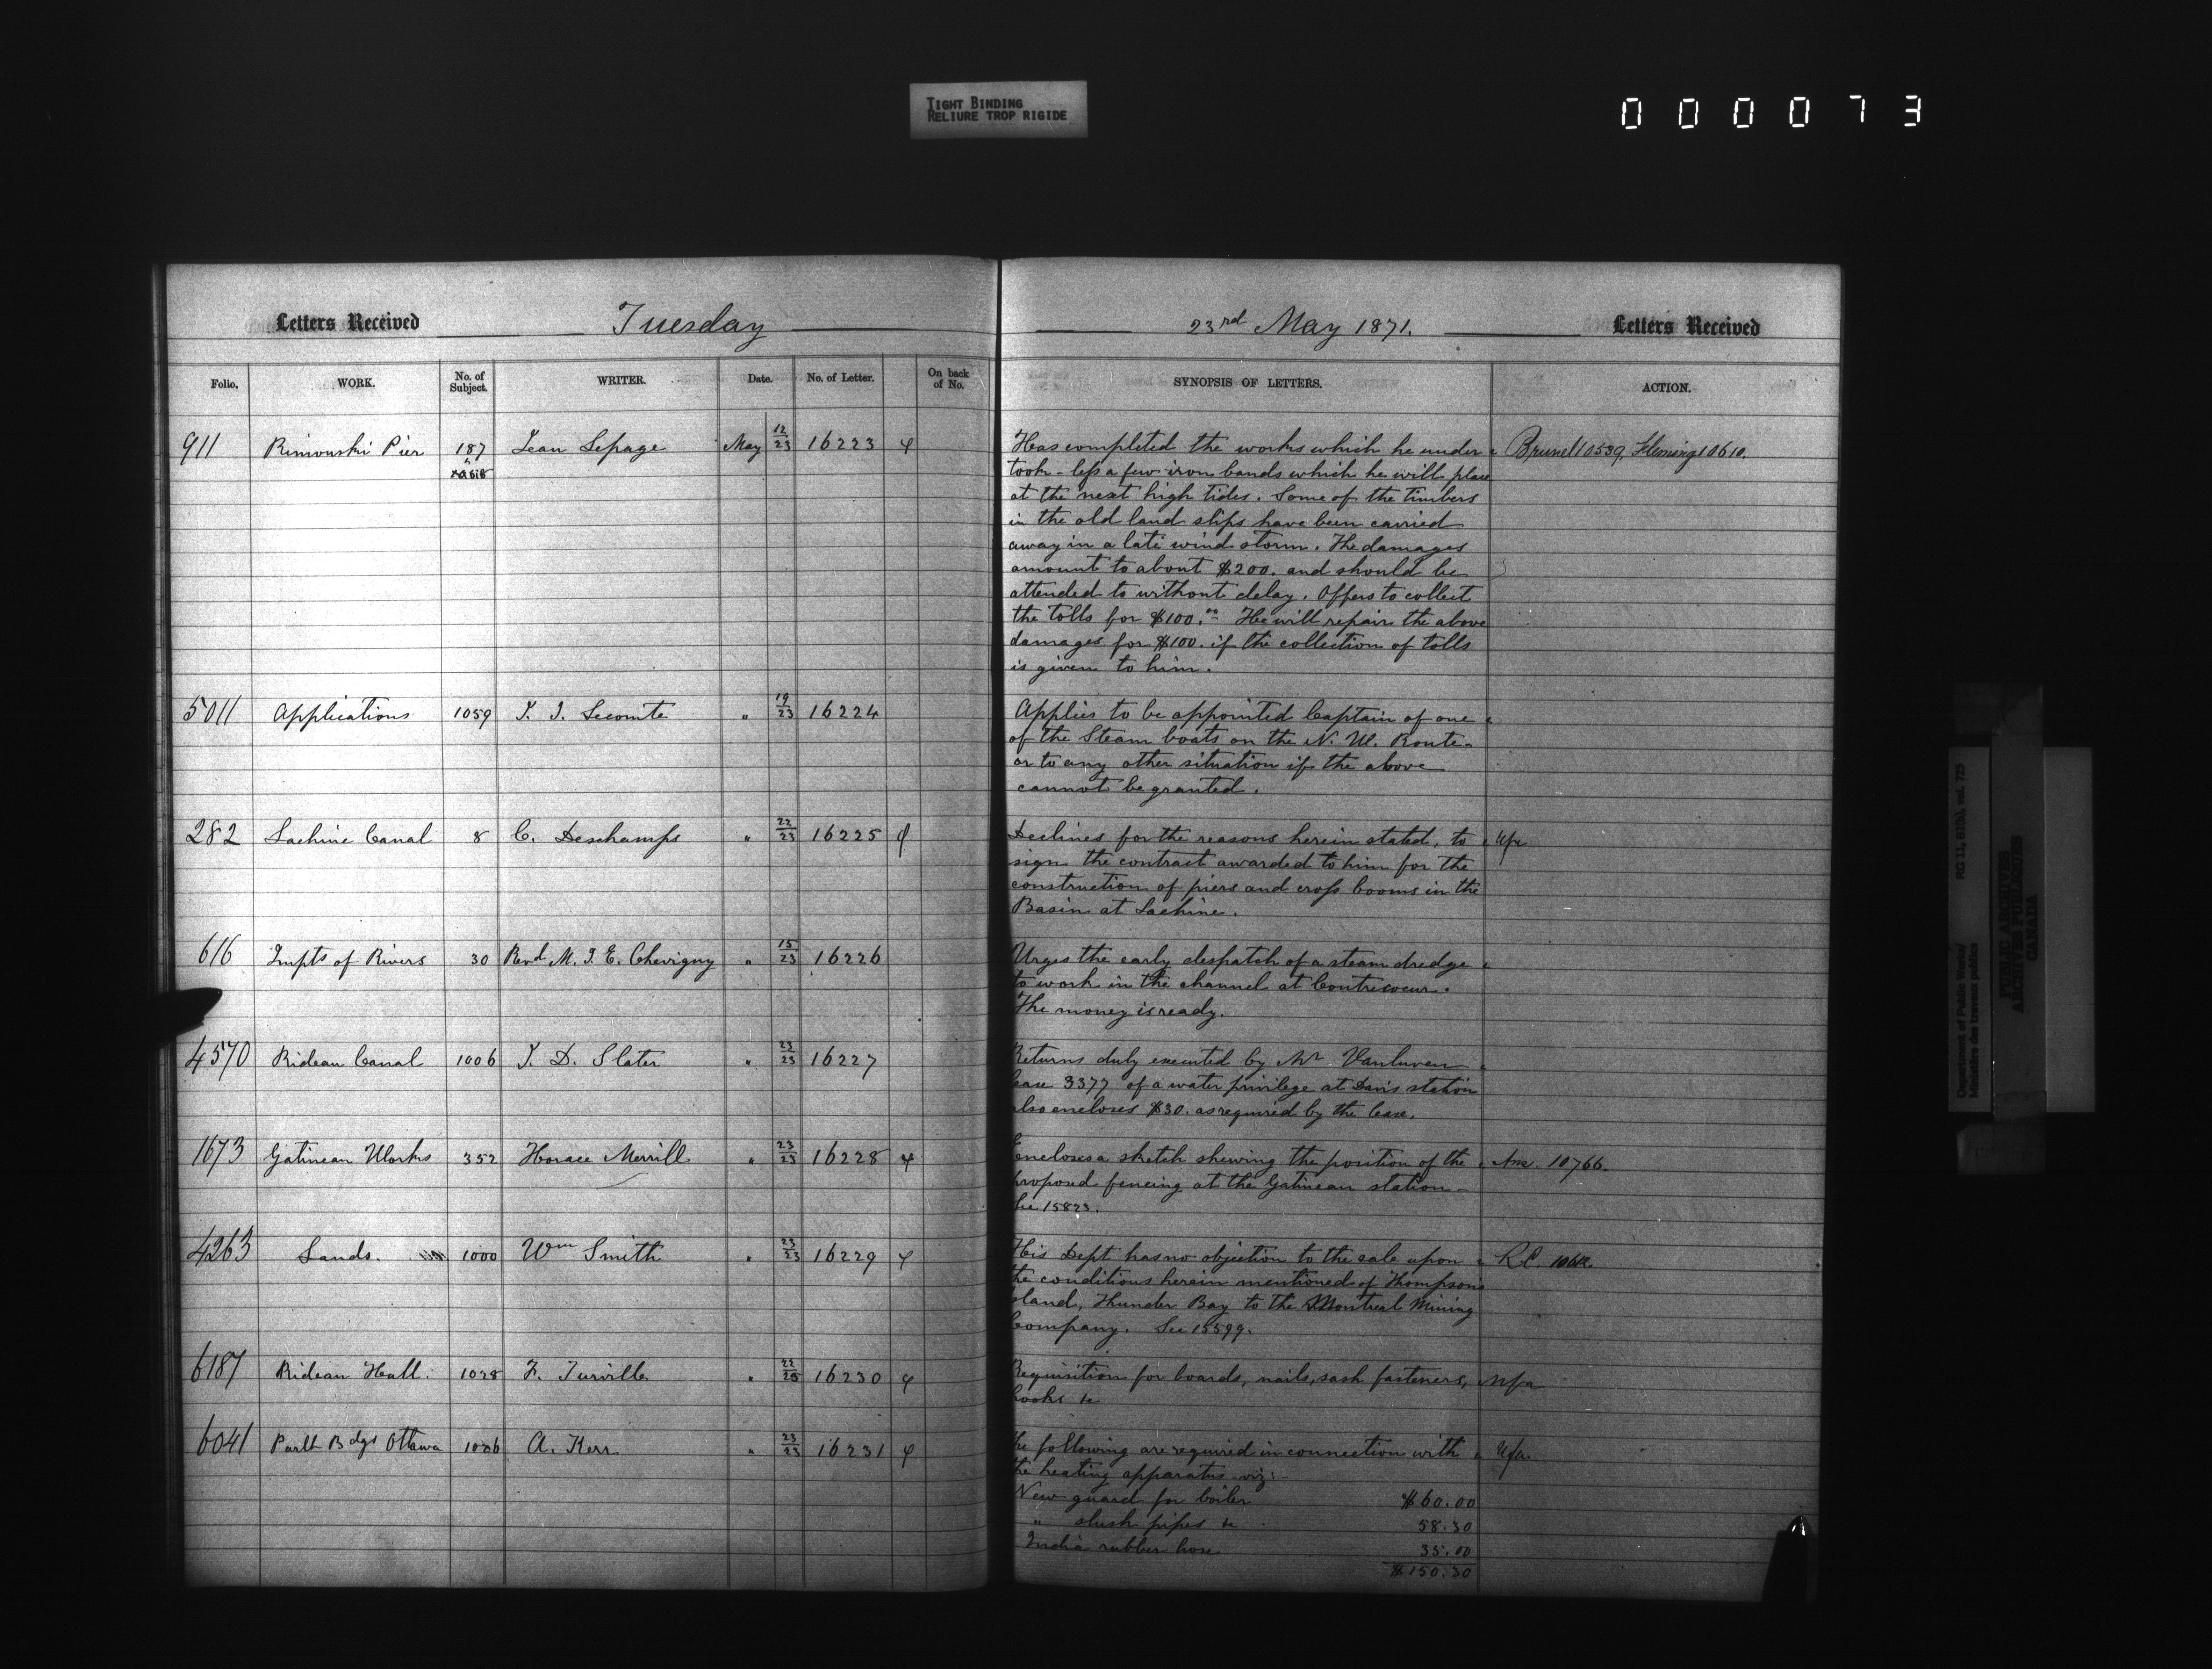 TIGHT BINDING
RELIURE TROP RIGIDE
0 0 0 0 7 3
Letters Received Tuesday
Folio. WORK. No. of Subject. WRITER. Date. No. of Letter. On back of No.
911 Rimouski Pier 187 Jean Lepage May 12/23 16223
5011 Applications 1059 T. J. Lecomte " 19/23 16224
282 Lachine Canal 8 C. Deschamps " 22/23 16225
616 Impts of Rivers 30 Revd M. J. E. Chevigny " 15/23 16226
4570 Rideau Canal 1006 T. D. Slater " 23/23 16227
1673 Gatineau Works 352 Horace Merrill " 23/23 16228
4263 Lands. 1000 Wm Smith " 23/23 16229
6187 Rideau Hall. 1028 F. Turville " 22/23 16230
6041 Parlt Bdgs Ottawa 1026 A. Kerr " 23/23 16231
23rd May 1871. Letters Received
SYNOPSIS OF LETTERS. ACTION.
Has completed the works which he under Brunel 10539, Fleming 10610.
took - less a few iron bands which he will place
at the next high tides. Some of the timbers
in the old land slips have been carried
away in a late wind storm. The damages
amount to about $200. and should be
attended to without delay. Offers to collect
the tolls for $100.00 He will repair the above
damages for $100. if the collection of tolls
is given to him.
Applies to be appointed Captain of one
of the Steam boats on the N. W. Route
or to any other situation if the above
cannot be granted.
Declines for the reasons herein stated, to
sign the contract awarded to him for the
construction of piers and cross booms in the
Basin at Lachine.
Urges the early despatch of a steam dredge
to work in the channel at Contrecoeur.
The money is ready.
Returns duly executed by Mr Vanluven
lease 3377 of a water privilege at Davis station
also encloses $30. as required by the lease.
Encloses a sketch shewing the position of the Ans. 10766.
proposed fencing at the Gatineau station
See 15823.
His Dept has no objection to the sale upon R.C.
the conditions herein mentioned of Thompsons
Island, Thunder Bay to the Montreal Mining
Company. See 15599.
Requisition for boards, nails, sash fasteners, Nfa
hooks &c
The following are required in connection with
the heating apparatus viz:-
New guard for boiler $60.00
" slush pipes &c 58.30
India rubber hose. 35.00
$150.30
Department of Public Works/ RG 11, B1(b), vol. 725
Ministère des travaux publics
PUBLIC ARCHIVES
ARCHIVES PUBLIQUES
CANADA